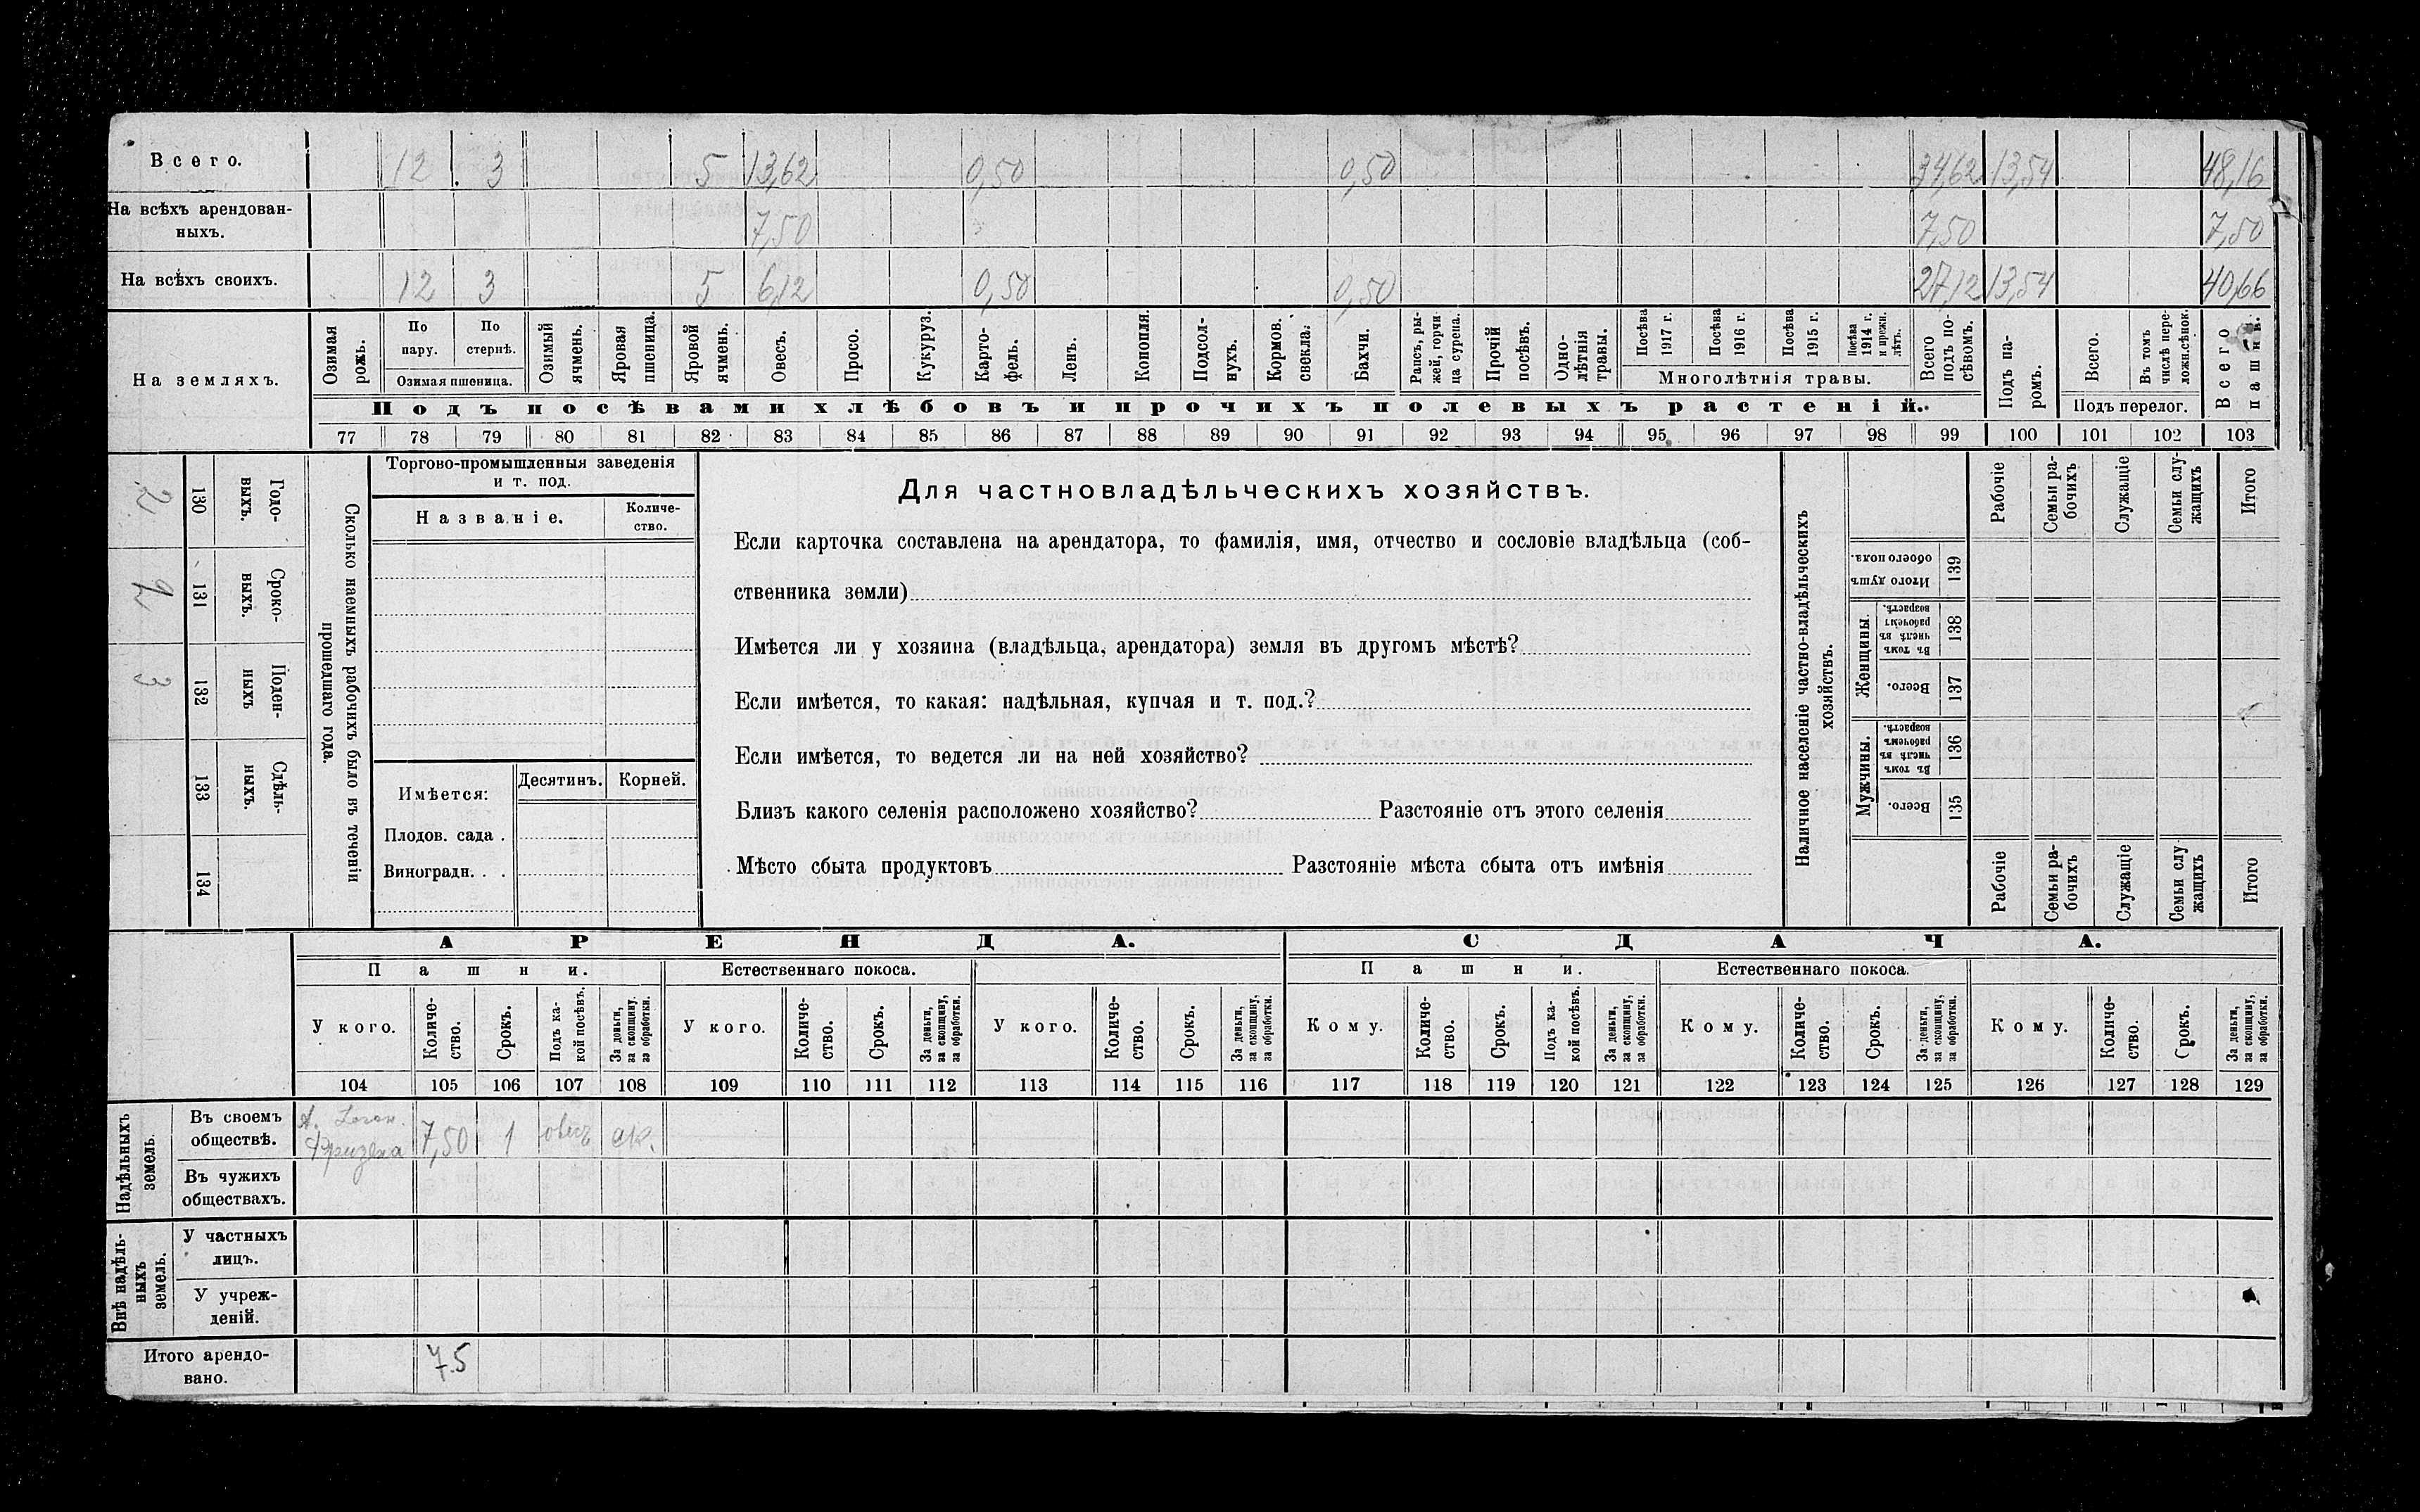 Всего. 12 3 5 13,62 0,50 0,50 34,62 13,54 48,16
На всѣхъ арендован-
ныхъ. 7,50 7,50 7,50
На всѣхъ своихъ. 12 3 5 6,12 0,50 0,50 27,12 13,54 40,66
На земляхъ.
Озимая рожь.
По пару.
По стернѣ.
Озимая пшеница.
Озимый ячмень.
Яровая пшеница.
Яровой ячмень.
Овесъ.
Просо.
Кукуруз.
Карто-
фель.
Ленъ.
Конопля.
Подсол-
нухъ.
Кормов. свекла.
Бахчи.
Рапсъ, ры-
жей, горчи
ца сурепа.
Прочій посѣвъ.
Одно-
лѣтнія травы.
Посѣва 1917 г.
Посѣва 1916 г.
Посѣва 1915 г.
Посѣва 1914 г. и прежн. лѣтъ.
Многолѣтнія травы.
Всего подъ по-
сѣвомъ.
Подъ па-
ромъ.
Всего.
Въ томъ числѣ пере-
ложн.сѣнок.
Подъ перелог.
Всего пашни.
Подъ посѣвами хлѣбовъ и прочихъ полевыхъ растеній.
77 78 79 80 81 82 83 84 85 86 87 88 89 90 91 92 93 94 95 96 97 98 99 100 101 102 103
2 130 Годо-
выхъ.
2 131 Сроко-
выхъ.
3 132 Поден-
ныхъ
133 Сдѣль-
ныхъ.
134
Сколько наемныхъ рабочихъ было въ теченіи
прошедшаго года.
Торгово-промышленныя заведенія
и т. под.
Названіе.
Количе-
ство.
Имѣется:
Десятинъ.
Корней.
Плодов. сада .
Виноградн. . .
Для частновладѣльческихъ хозяйствъ.
Если карточка составлена на арендатора, то фамилія, имя, отчество и сословіе владѣльца (соб-
ственника земли)
Имѣется ли у хозяина (владѣльца, арендатора) земля въ другомъ мѣстѣ?
Если имѣется, то какая: надѣльная, купчая и т. под.?
Если имѣется, то ведется ли на ней хозяйство?
Близъ какого селенія расположено хозяйство? Разстояніе отъ этого селенія
Мѣсто сбыта продуктовъ Разстояніе мѣста сбыта отъ имѣнія
Наличное населеніе частно-владѣльческихъ
хозяйствъ.
Рабочіе
Семьи ра-
бочихъ
Служащіе
Семьи слу-
жащихъ
Итого
Итого душъ обоего пола. 139
Женщины.
Въ томъ числѣ въ рабочемъ возрастѣ. 138
Всего. 137
Мужчины.
Въ томъ числѣ въ рабочемъ возрастѣ. 136
Всего. 135
Рабочіе
Семьи ра-
бочихъ
Служащіе
Семьи слу
жащихъ
Итого
АРЕНДА.
СДАЧА.
Пашни.
Естественнаго покоса.
Пашни.
Естественнаго покоса.
У кого.
Количе-
ство.
Срокъ.
Подъ ка-
кой посѣвъ.
За деньги, за скопщину, за обработки.
У кого.
Количе-
ство.
Срокъ.
За деньги, за скопщину, за обработки.
У кого.
Количе-
ство.
Срокъ.
За деньги, за скопщину, за обработки.
Кому.
Количе-
ство.
Срокъ.
Подъ ка-
кой посѣвъ.
За деньги, за скопщину, за обработки.
Кому.
Количе-
ство.
Срокъ.
За деньги, за скопщину, за обработки.
Кому.
Количе-
ство.
Срокъ.
За деньги, за скопщину, за обработки.
104 105 106 107 108 109 110 111 112 113 114 115 116 117 118 119 120 121 122 123 124 125 126 127 128 129
Надѣльныхъ земель.
Въ своемъ
обществѣ. Фризена 7,50 1 овесъ ск.
Въ чужихъ
обществахъ.
Внѣ надѣль-
ныхъ земель.
У частныхъ
лицъ.
У учреж-
деній.
Итого арендо-
вано. 7.5